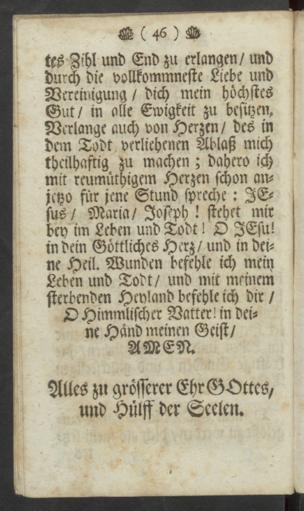 ( 46 )
tes Zihl und End zu erlangen/ und
durch die vollkommneste Liebe und
Vereinigung / dich mein höchstes
Gut/ in alle Ewigkeit zu besitzen,
Verlange auch von Herzen/ des in
dem Todt verliehenen Ablaß mich
theilhaftig zu machen; dahero ich
mit reumüthigem Herzen schon an-
jetzo für jene Stund spreche: JE-
sus/ Maria/ Joseph! stehet mir
bey im Leben und Todt! O JEsu!
in dein Göttliches Herz/ und in dei-
ne Heil. Wunden befehle ich mein
Leben und Todt/ und mit meinem
sterbenden Heyland befehle ich dir /
O Himmlischer Vatter! in dei-
ne Händ meinen Geist/
AMEN.
Alles zu grösserer Ehr GOttes,
und Hülff der Seelen.